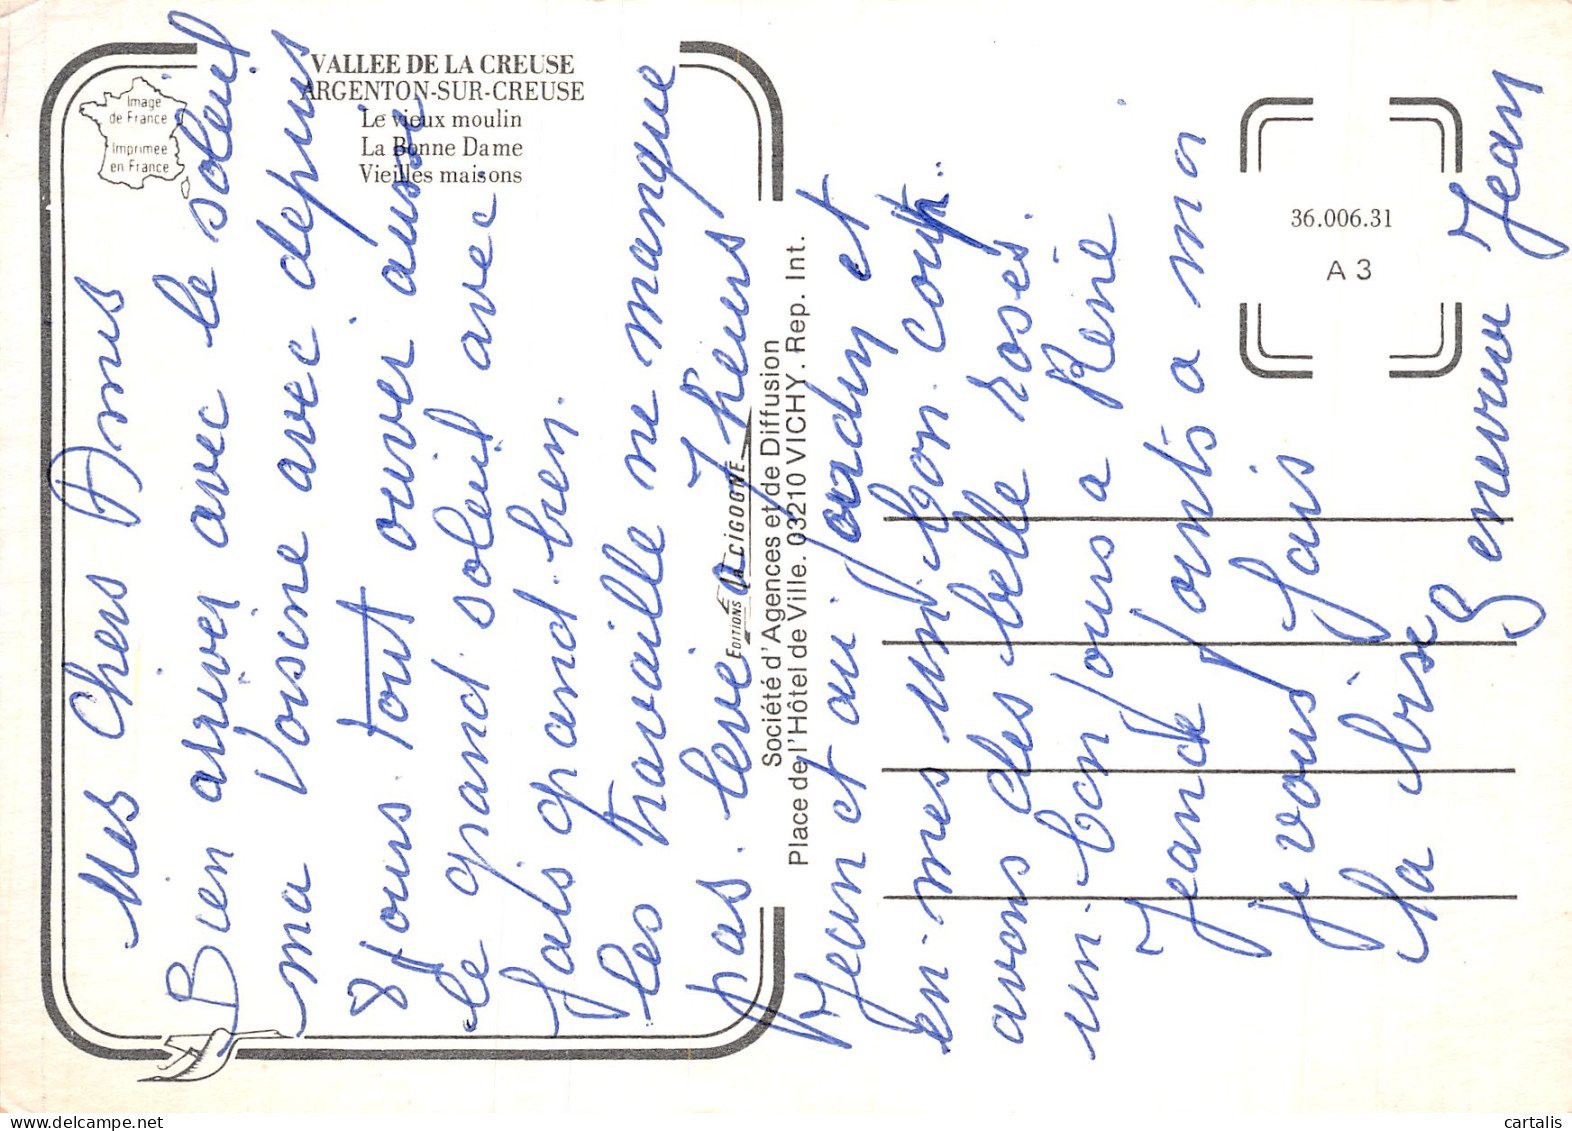 VALLEE DE LA CREUSE
ARGENTON-SUR-CREUSE
Le vieux moulin
La Bonne Dame
Vieilles maisons
Image
de France
Imprimée
en France
EDITIONS LA CIGOGNE
Société d'Agences et de Diffusion
Place de l'Hôtel de Ville. 03210 VICHY. Rep. Int.
36.006.31
A 3
Mes Chers Amis
Bien arriver avec le soleil
ma Voisine avec depuis
8 Jours. Tout ouver aussi
le grand soleil avec.
Jais grand bien.
les travaille ne manque
pas. leve a 7 heurs
Jean et au Jardin et
en mes un bon coup..
avons des belle roses.
un bon Jours a Reine
Jeande Joints a ma
Je vous fais
la bise
Genevieve Jean
cartalis